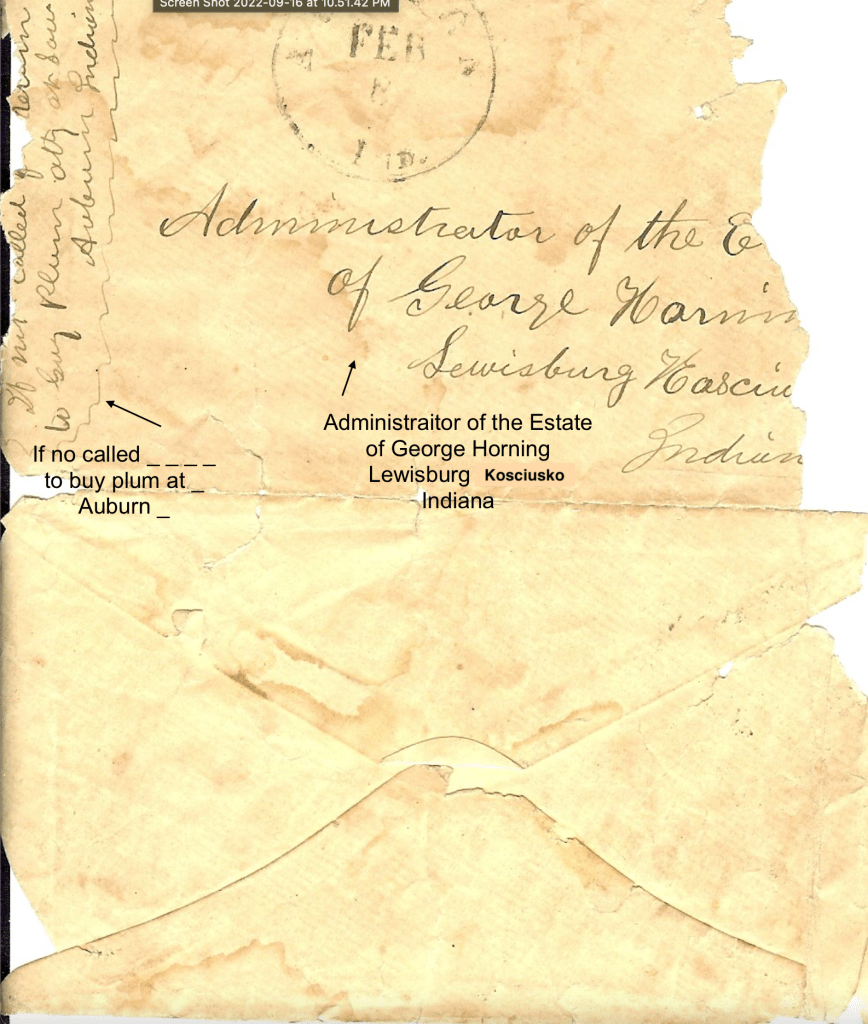 Screen Shot 2022-09-16 at 10.51.42 PM
FEB
8
IND.
If not called return
to Guy Plum atty at Law
Auburn Indian
Administrator of the E
of George Hornin
Lewisburg Kosciu
Indian
If no called _ _ _ _
to buy plum at _
Auburn _
Administraitor of the Estate
of George Horning
Lewisburg Kosciusko
Indiana